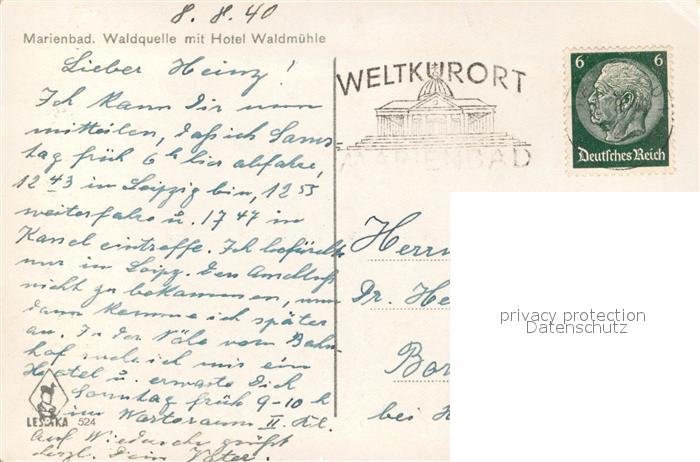 8.8.40
Marienbad. Waldquelle mit Hotel Waldmühle
Lieber Heinz!
Ich kann Dir nun
mitteilen, daß ich Sams
tag früh 6 h hier abfahre,
12 43 in Leipzig bin, 12 53
weiterfahre u. 17 47 in
Kassel eintreffe. Ich befürchte
nur in Leipz. den Anschluß
nicht zu bekommen, nun
dann komme ich später
an. In der Nähe vom Bahn
hof suche ich mir ein
Hotel u. erwarte Dich
Sonntag früh 9-10 h
im Warteraum II. Kl.
Auf Wiedersehn grüßt
herzl. Dein Vater.
LESSKA 524
WELTKURORT
MARIENBAD
6 6
Deutsches Reich
Herrn
Dr. He
Bor
bei H
privacy protection
Datenschutz